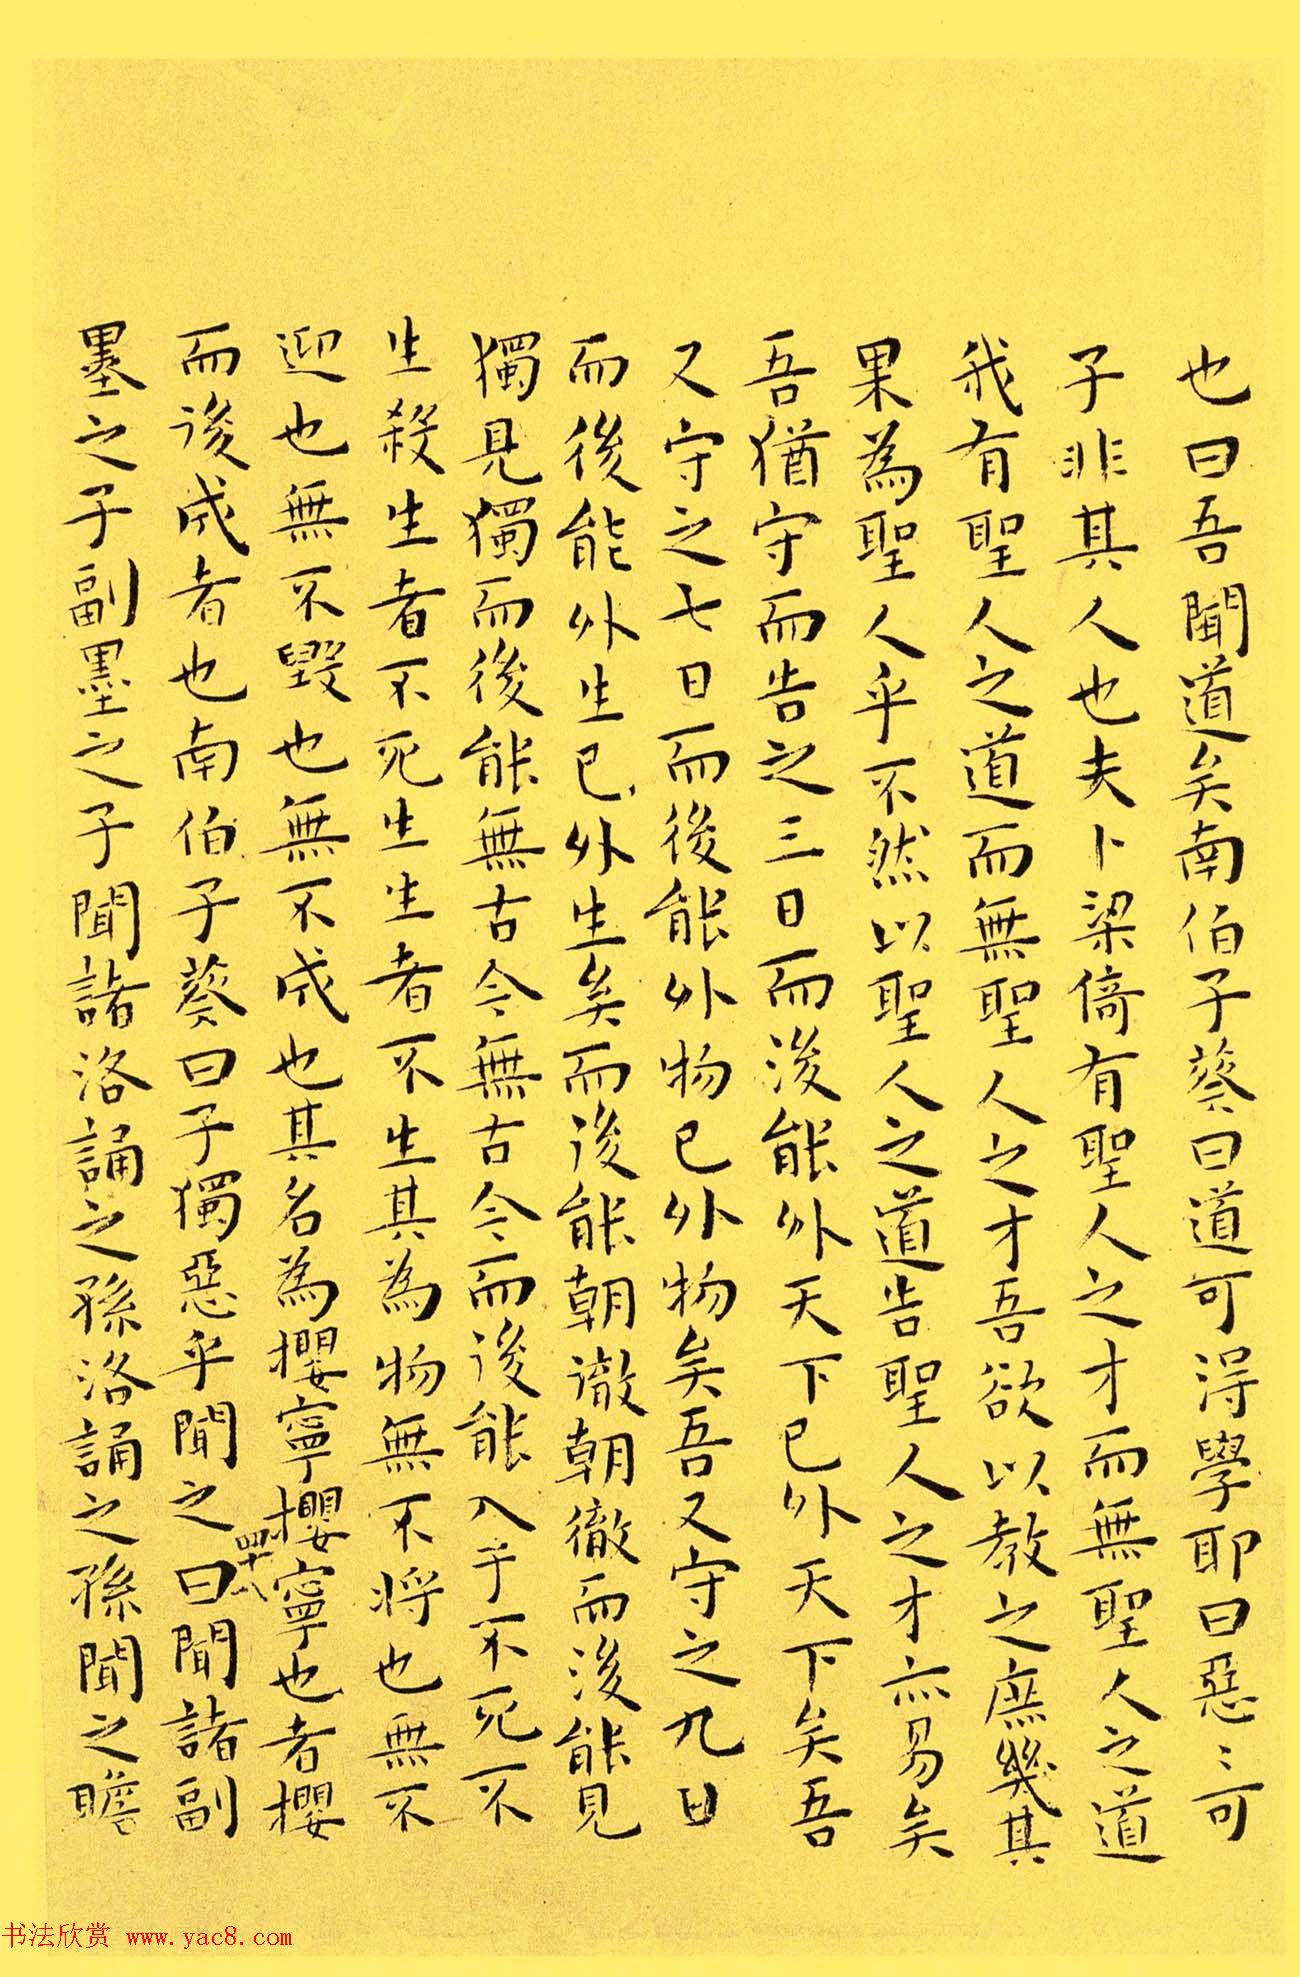 也曰吾聞道矣南伯子葵曰道可得學耶曰惡〻可
子非其人也夫卜梁倚有聖人之才而無聖人之道
我有聖人之道而無聖人之才吾欲以教之庶幾其
果為聖人乎不然以聖人之道告聖人之才亦易矣
吾猶守而告之三日而後能外天下已外天下矣吾
又守之七日而後能外物已外物矣吾又守之九日
而後能外生已外生矣而後能朝徹朝徹而後能見
獨見獨而後能無古今無古今而後能入于不死不
生殺生者不死生生者不生其為物無不將也無不
迎也無不毀也無不成也其名為攖寧攖寧也者攖
而後成者也南伯子葵曰子獨惡乎聞之曰聞諸副
四十八
墨之子副墨之子聞諸洛誦之孫洛誦之孫聞之瞻
书法欣赏 www.yac8.com